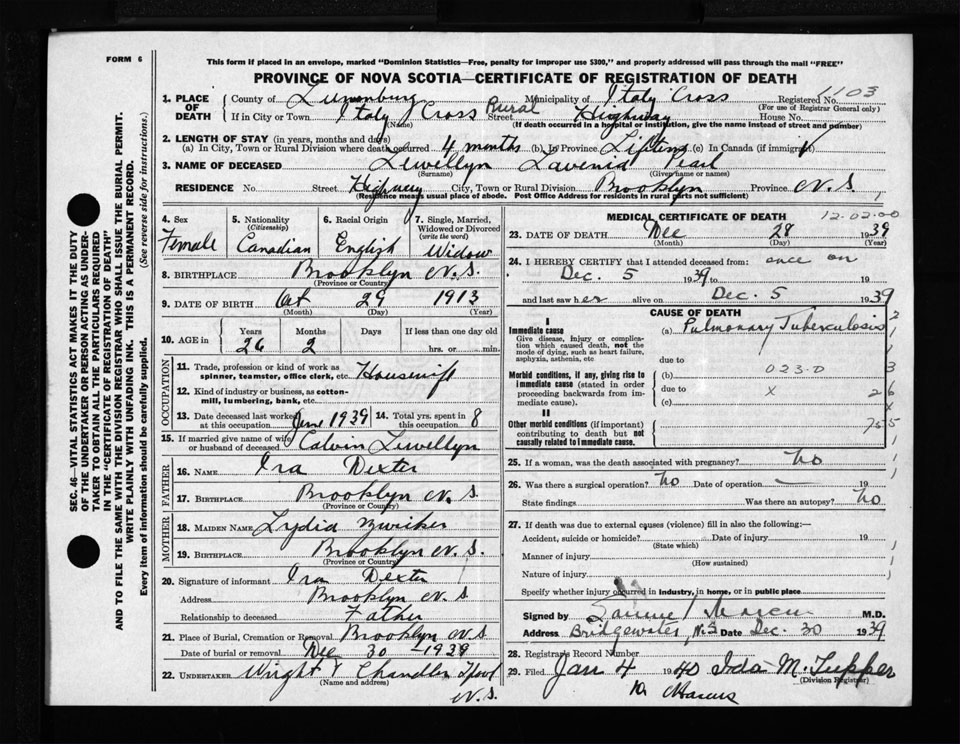 FORM 6
This form if placed in an envelope, marked "Dominion Statistics—Free, penalty for improper use $300," and properly addressed will pass through the mail "FREE"
PROVINCE OF NOVA SCOTIA—CERTIFICATE OF REGISTRATION OF DEATH
1. PLACE OF DEATH
County of Lunenburg Municipality of Italy Cross Registered No. 1103
(For use of Registrar General only)
If in City or Town Italy Cross Rural Street Highway House No.
(Name) (If death occurred in a hospital or institution, give the name instead of street and number)
2. LENGTH OF STAY (in years, months and days)
(a) In City, Town or Rural Division where death occurred 4 months (b) In Province Lifetime (c) In Canada (if immigrant)
3. NAME OF DECEASED Lewellyn Lavenia Pearl
(Surname) (Given name or names)
RESIDENCE No. Street Highway City, Town or Rural Division Brooklyn Province N.S.
(Residence means usual place of abode. Post Office Address for residents in rural parts not sufficient)
4. Sex Female
5. Nationality (Citizenship) Canadian
6. Racial Origin English
7. Single, Married, Widowed or Divorced (write the word) Widow
8. BIRTHPLACE Brooklyn N.S.
(Province or Country)
9. DATE OF BIRTH Oct 29 1913
(Month) (Day) (Year)
10. AGE in Years Months Days If less than one day old
26 2 hrs. or min.
OCCUPATION
11. Trade, profession or kind of work as spinner, teamster, office clerk, etc. Housewife
12. Kind of industry or business, as cotton-mill, lumbering, bank, etc.
13. Date deceased last worked at this occupation June 1939
14. Total yrs. spent in 8
15. If married give name of wife or husband of deceased Calvin Lewellyn
FATHER
16. NAME Ira Dexter
17. BIRTHPLACE Brooklyn N.S.
(Province or Country)
MOTHER
18. MAIDEN NAME Lydia Zwicker
19. BIRTHPLACE Brooklyn N.S.
(Province or Country)
20. Signature of informant Ira Dexter
Address Brooklyn N.S
Relationship to deceased Father
21. Place of Burial, Cremation or Removal Brooklyn N.S
Date of burial or removal Dec 30 - 1939
22. UNDERTAKER Wright & Chandler Lpool
(Name and address) N.S.
MEDICAL CERTIFICATE OF DEATH 12-02-00
23. DATE OF DEATH Dec 28 1939
(Month) (Day) (Year)
24. I HEREBY CERTIFY that I attended deceased from: once on
Dec. 5 1939 to 19
and last saw her alive on Dec. 5 1939
CAUSE OF DEATH
I
Immediate cause
Give disease, injury or complication which caused death, not the mode of dying, such as heart failure, asphyxia, asthenia, etc
(a) Pulmonary Tuberculosis
due to
Morbid conditions, if any, giving rise to immediate cause (stated in order proceeding backwards from immediate cause).
(b) 023.0
due to x 26
(c)
II
Other morbid conditions (if important) contributing to death but not causally related to immediate cause.
755
25. If a woman, was the death associated with pregnancy? no
26. Was there a surgical operation? no Date of operation — 19
State findings Was there an autopsy? no
27. If death was due to external causes (violence) fill in also the following:—
Accident, suicide or homicide? Date of injury 19
(State which)
Manner of injury
(How sustained)
Nature of injury
Specify whether injury occurred in industry, in home, or in public place
Signed by Samuel Marcus M.D.
Address Bridgewater, N.S Date Dec. 30 1939
28. Registrar's Record Number
29. Filed Jan 4 1940 Ida M. Tupper
(Division Registrar)
Marcus
SEC. 46—VITAL STATISTICS ACT MAKES IT THE DUTY
OF THE UNDERTAKER OR PERSON ACTING AS UNDER-
TAKER TO OBTAIN ALL THE PARTICULARS REQUIRED
IN THE "CERTIFICATE OF REGISTRATION OF DEATH"
AND TO FILE THE SAME WITH THE DIVISION REGISTRAR WHO SHALL ISSUE THE BURIAL PERMIT.
WRITE PLAINLY WITH UNFADING INK. THIS IS A PERMANENT RECORD.
Every item of information should be carefully supplied. (See reverse side for instructions.)